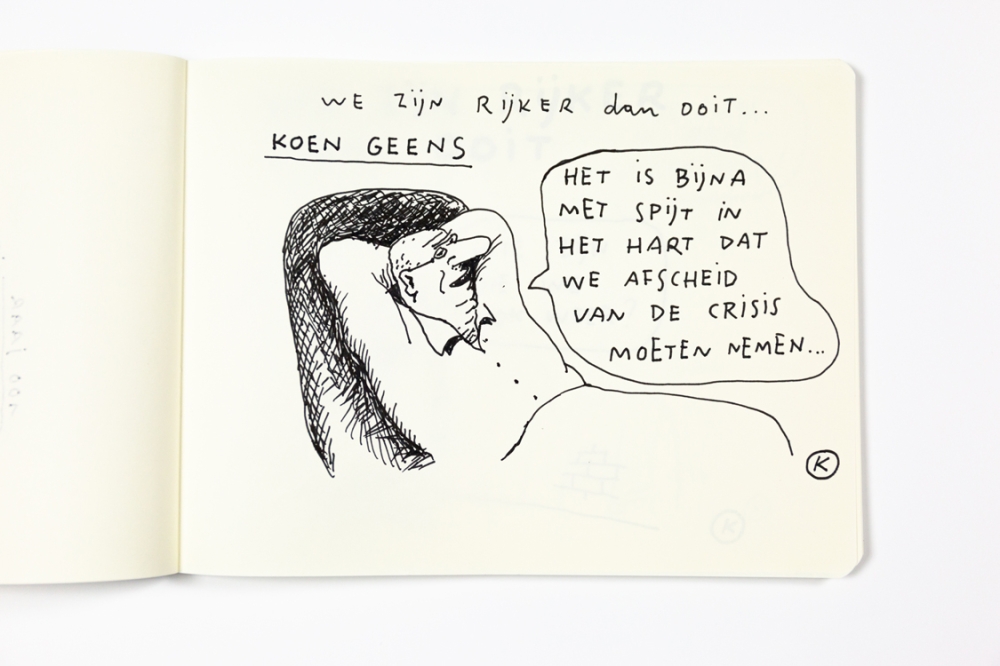 WE ZIJN RIJKER dan OOIT...
KOEN GEENS
HET IS BIJNA
MET SPIJT IN
HET HART DAT
WE AFSCHEID
VAN DE CRISIS
MOETEN NEMEN...
K